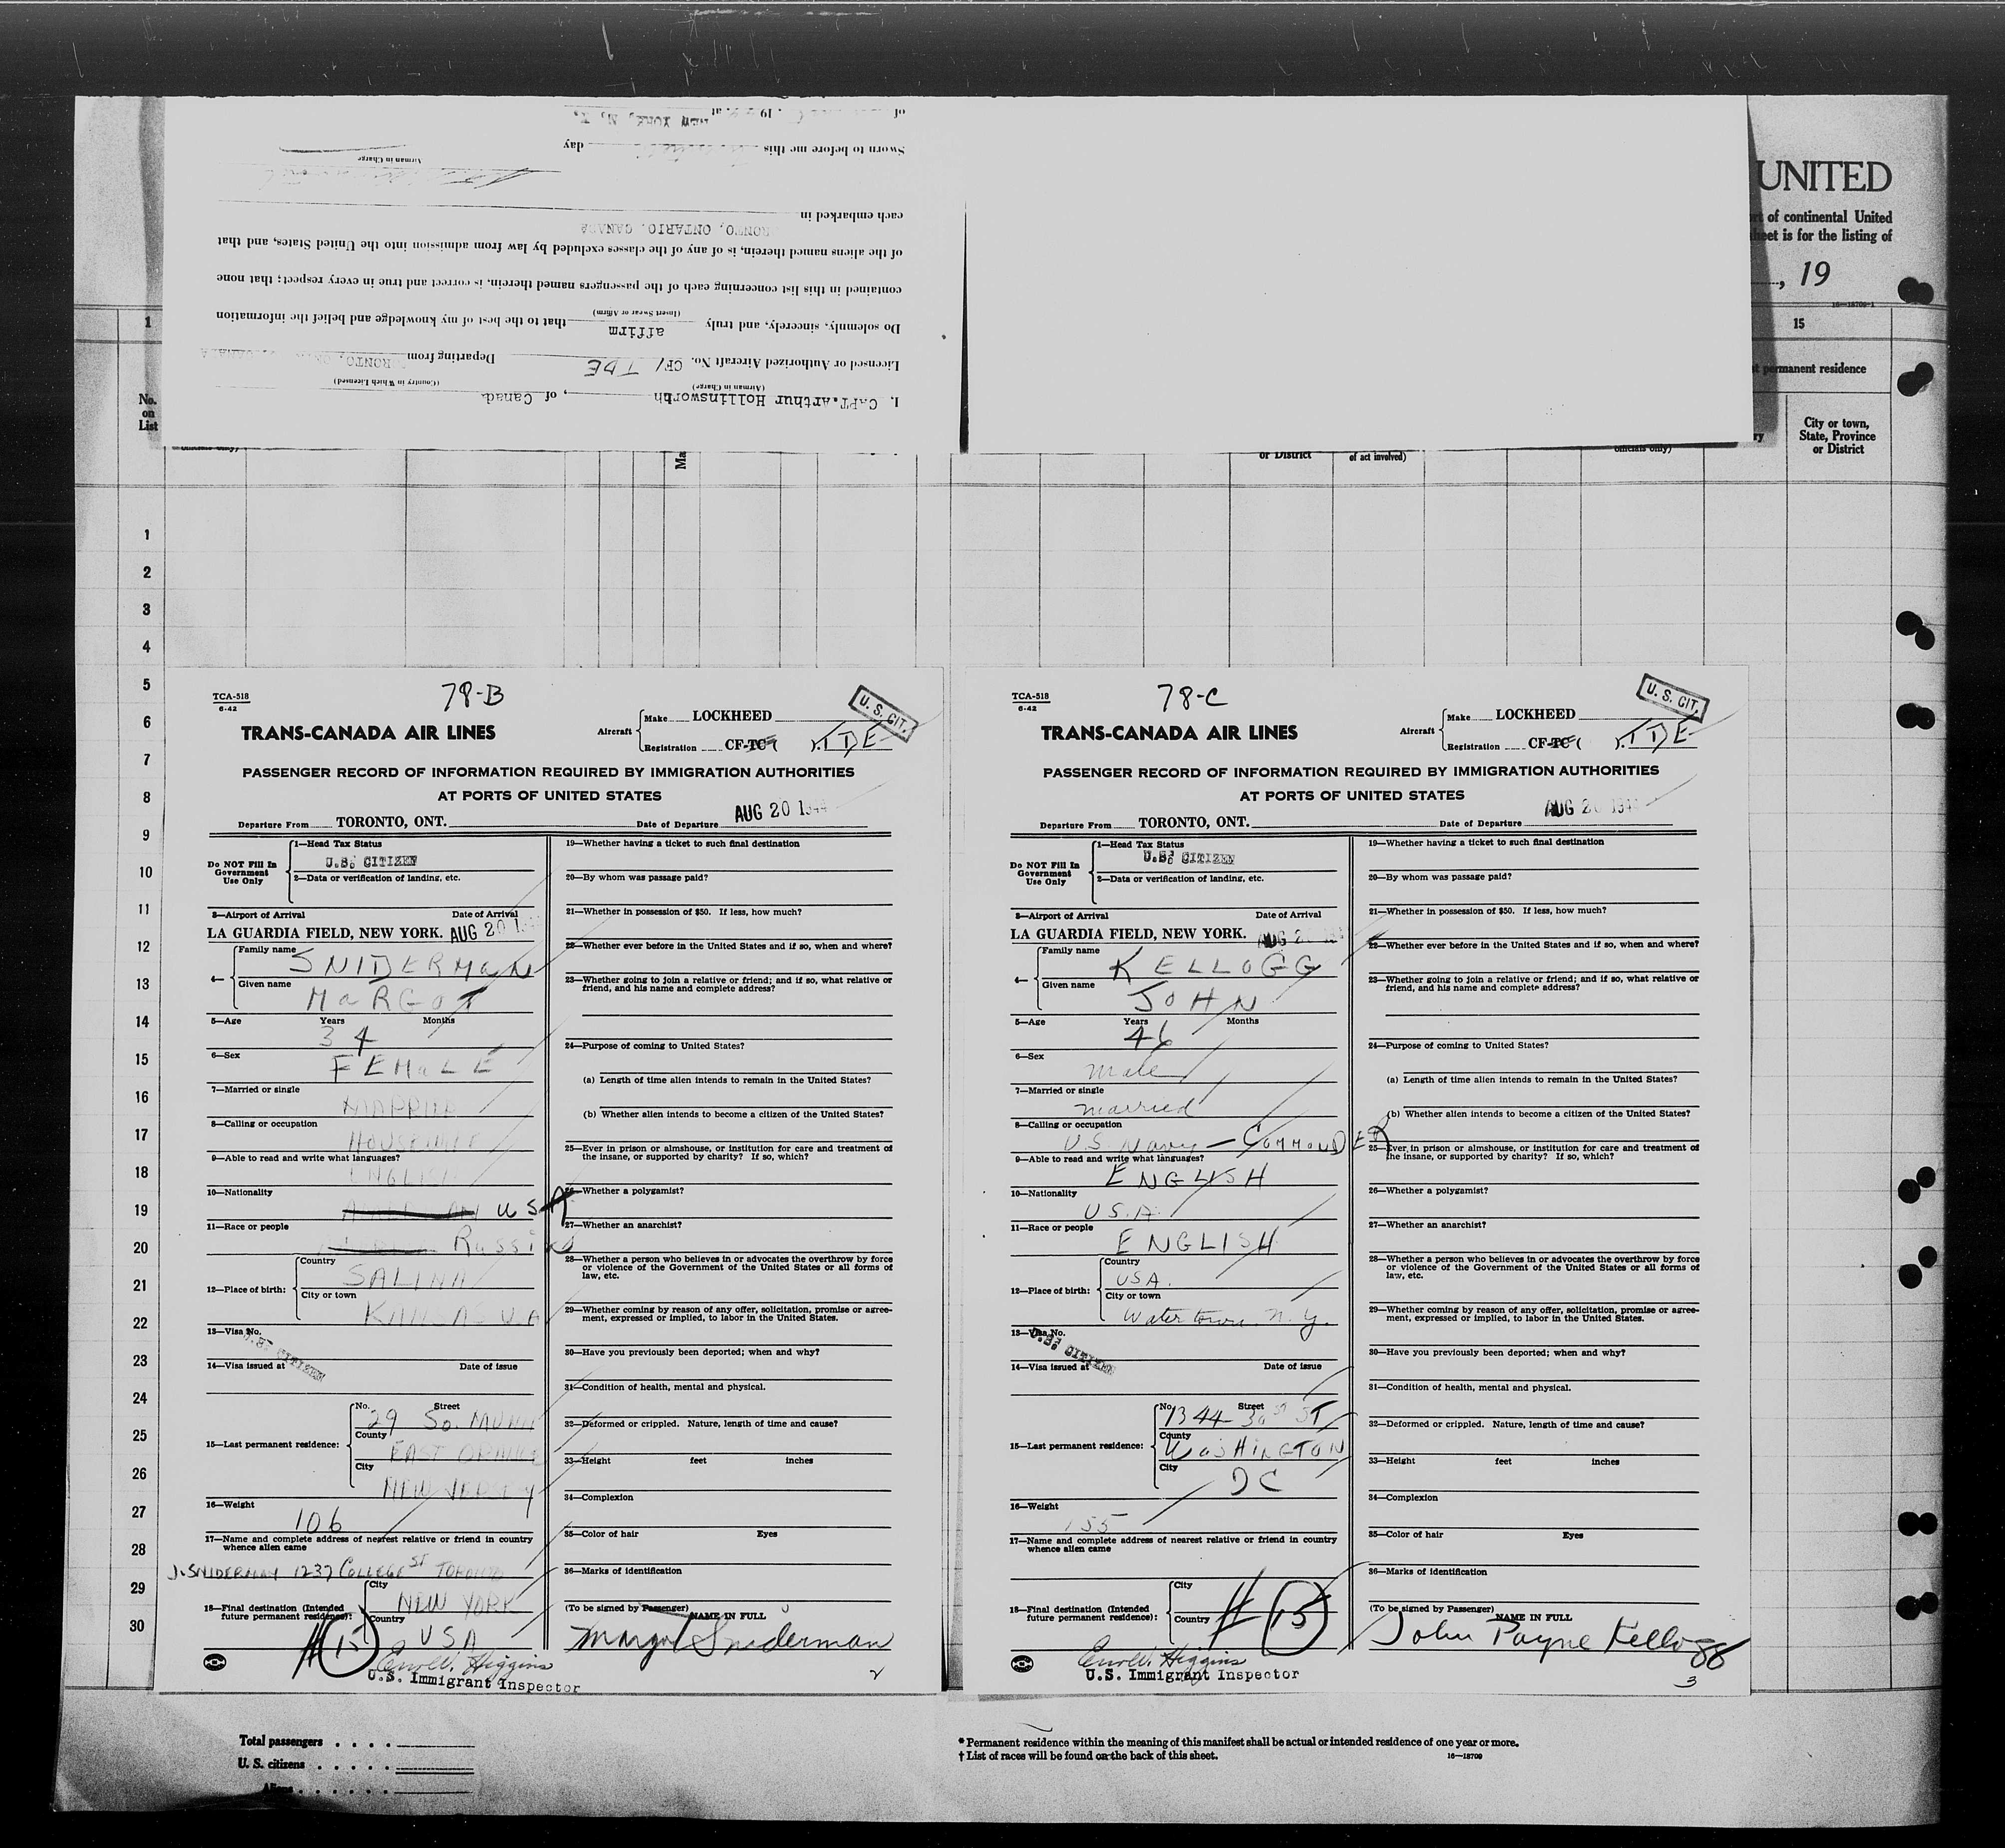 UNITED
of continental United
sheet is for the listing of
, 19
16—18709-1
1
15
permanent residence
No.
on
List
City or town,
State, Province
or District
I, CAPT. Arthur Hollinsworth, of Canad
(Airman in Charge) (Country in Which Licensed)
Licensed or Authorized Aircraft No. CF/ TDE Departing from RONTO,
Do solemnly, sincerely, and truly affirm that to the best of my knowledge and belief the information
(Insert Swear or Affirm)
contained in this list concerning each of the passengers named therein, is correct and true in every respect; that none
of the aliens named therein, is of any of the classes excluded by law from admission into the United States, and that
RONTO, ONTARIO, CANADA
each embarked in
Airman in Charge
Sworn to before me this day
of , 19 at NEW YORK, N. Y.
Ma
or District
of act involved)
officials only)
1
2
3
4
5
6
7
8
9
10
11
12
13
14
15
16
17
18
19
20
21
22
23
24
25
26
27
28
29
30
TCA-518
6-42
78-B
U. S. CIT.
TRANS-CANADA AIR LINES
Aircraft
Make LOCKHEED
Registration CF-TC- ( ). TDE
PASSENGER RECORD OF INFORMATION REQUIRED BY IMMIGRATION AUTHORITIES
AT PORTS OF UNITED STATES
Departure From TORONTO, ONT. Date of Departure AUG 20 1944
Do NOT Fill In
Government
Use Only
1—Head Tax Status
U.S. CITIZEN
2—Data or verification of landing, etc.
3—Airport of Arrival Date of Arrival
LA GUARDIA FIELD, NEW YORK. AUG 20
4— Family name
SNIDERMAN
Given name
MARGOT
5—Age Years Months
34
6—Sex
FEMALE
7—Married or single
MARRIED
8—Calling or occupation
HOUSEWIFE
9—Able to read and write what languages?
ENGLISH
10—Nationality
USA
11—Race or people
Russian
12—Place of birth:
Country
SALINA
City or town
KANSAS U.S.A
13—Visa No.
U.S. CITIZEN
14—Visa issued at Date of issue
15—Last permanent residence:
No. Street
29 So. MUNN
County
EAST ORANGE
City
NEW JERSEY
16—Weight
106
17—Name and complete address of nearest relative or friend in country
whence alien came
J. SNIDERMAN 1237 COLLEGE ST TORONTO
18—Final destination (Intended
future permanent residence):
City
NEW YORK
Country
USA
# 15
Higgins
U.S. Immigrant Inspector
19—Whether having a ticket to such final destination
20—By whom was passage paid?
21—Whether in possession of $50. If less, how much?
22—Whether ever before in the United States and if so, when and where?
23—Whether going to join a relative or friend; and if so, what relative or
friend, and his name and complete address?
24—Purpose of coming to United States?
(a) Length of time alien intends to remain in the United States?
(b) Whether alien intends to become a citizen of the United States?
25—Ever in prison or almshouse, or institution for care and treatment of
the insane, or supported by charity? If so, which?
26—Whether a polygamist?
27—Whether an anarchist?
28—Whether a person who believes in or advocates the overthrow by force
or violence of the Government of the United States or all forms of
law, etc.
29—Whether coming by reason of any offer, solicitation, promise or agree-
ment, expressed or implied, to labor in the United States.
30—Have you previously been deported; when and why?
31—Condition of health, mental and physical.
32—Deformed or crippled. Nature, length of time and cause?
33—Height feet inches
34—Complexion
35—Color of hair Eyes
36—Marks of identification
(To be signed by Passenger) NAME IN FULL
Margot Sniderman
2
TCA-518
6-42
78-C
U. S. CIT.
TRANS-CANADA AIR LINES
Aircraft
Make LOCKHEED
Registration CF-TC- ( ). TDE
PASSENGER RECORD OF INFORMATION REQUIRED BY IMMIGRATION AUTHORITIES
AT PORTS OF UNITED STATES
Departure From TORONTO, ONT. Date of Departure AUG 20 1944
Do NOT Fill In
Government
Use Only
1—Head Tax Status
U.S. CITIZEN
2—Data or verification of landing, etc.
3—Airport of Arrival Date of Arrival
LA GUARDIA FIELD, NEW YORK. AUG 2
4— Family name
KELLOGG
Given name
JOHN
5—Age Years Months
46
6—Sex
male
7—Married or single
married
8—Calling or occupation
U.S. Navy — COMMANDER
9—Able to read and write what languages?
ENGLISH
10—Nationality
U.S.A.
11—Race or people
ENGLISH
12—Place of birth:
Country
USA.
City or town
Watertown. N.Y.
13—Visa No.
U.S. CITIZEN
14—Visa issued at Date of issue
15—Last permanent residence:
No. Street
1344 30th ST
County
WASHINGTON
City
DC
16—Weight
155
17—Name and complete address of nearest relative or friend in country
whence alien came
18—Final destination (Intended
future permanent residence):
City
Country
# 15
Higgins
U.S. Immigrant Inspector
19—Whether having a ticket to such final destination
20—By whom was passage paid?
21—Whether in possession of $50. If less, how much?
22—Whether ever before in the United States and if so, when and where?
23—Whether going to join a relative or friend; and if so, what relative or
friend, and his name and complete address?
24—Purpose of coming to United States?
(a) Length of time alien intends to remain in the United States?
(b) Whether alien intends to become a citizen of the United States?
25—Ever in prison or almshouse, or institution for care and treatment of
the insane, or supported by charity? If so, which?
26—Whether a polygamist?
27—Whether an anarchist?
28—Whether a person who believes in or advocates the overthrow by force
or violence of the Government of the United States or all forms of
law, etc.
29—Whether coming by reason of any offer, solicitation, promise or agree-
ment, expressed or implied, to labor in the United States.
30—Have you previously been deported; when and why?
31—Condition of health, mental and physical.
32—Deformed or crippled. Nature, length of time and cause?
33—Height feet inches
34—Complexion
35—Color of hair Eyes
36—Marks of identification
(To be signed by Passenger) NAME IN FULL
John Payne Kellogg
3
Total passengers . . . .
U. S. citizens . . . . .
Aliens . . . . . .
* Permanent residence within the meaning of this manifest shall be actual or intended residence of one year or more.
† List of races will be found on the back of this sheet.
16—18709